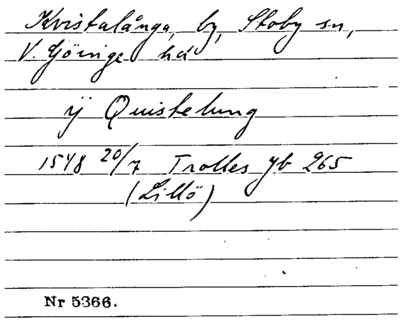 Kvistalånga, by, Stoby sn,
V. Göinge hd
ÿ Quistelung
1548 20/7 Trolles Jb 265
(Lillö)
Nr 5366.